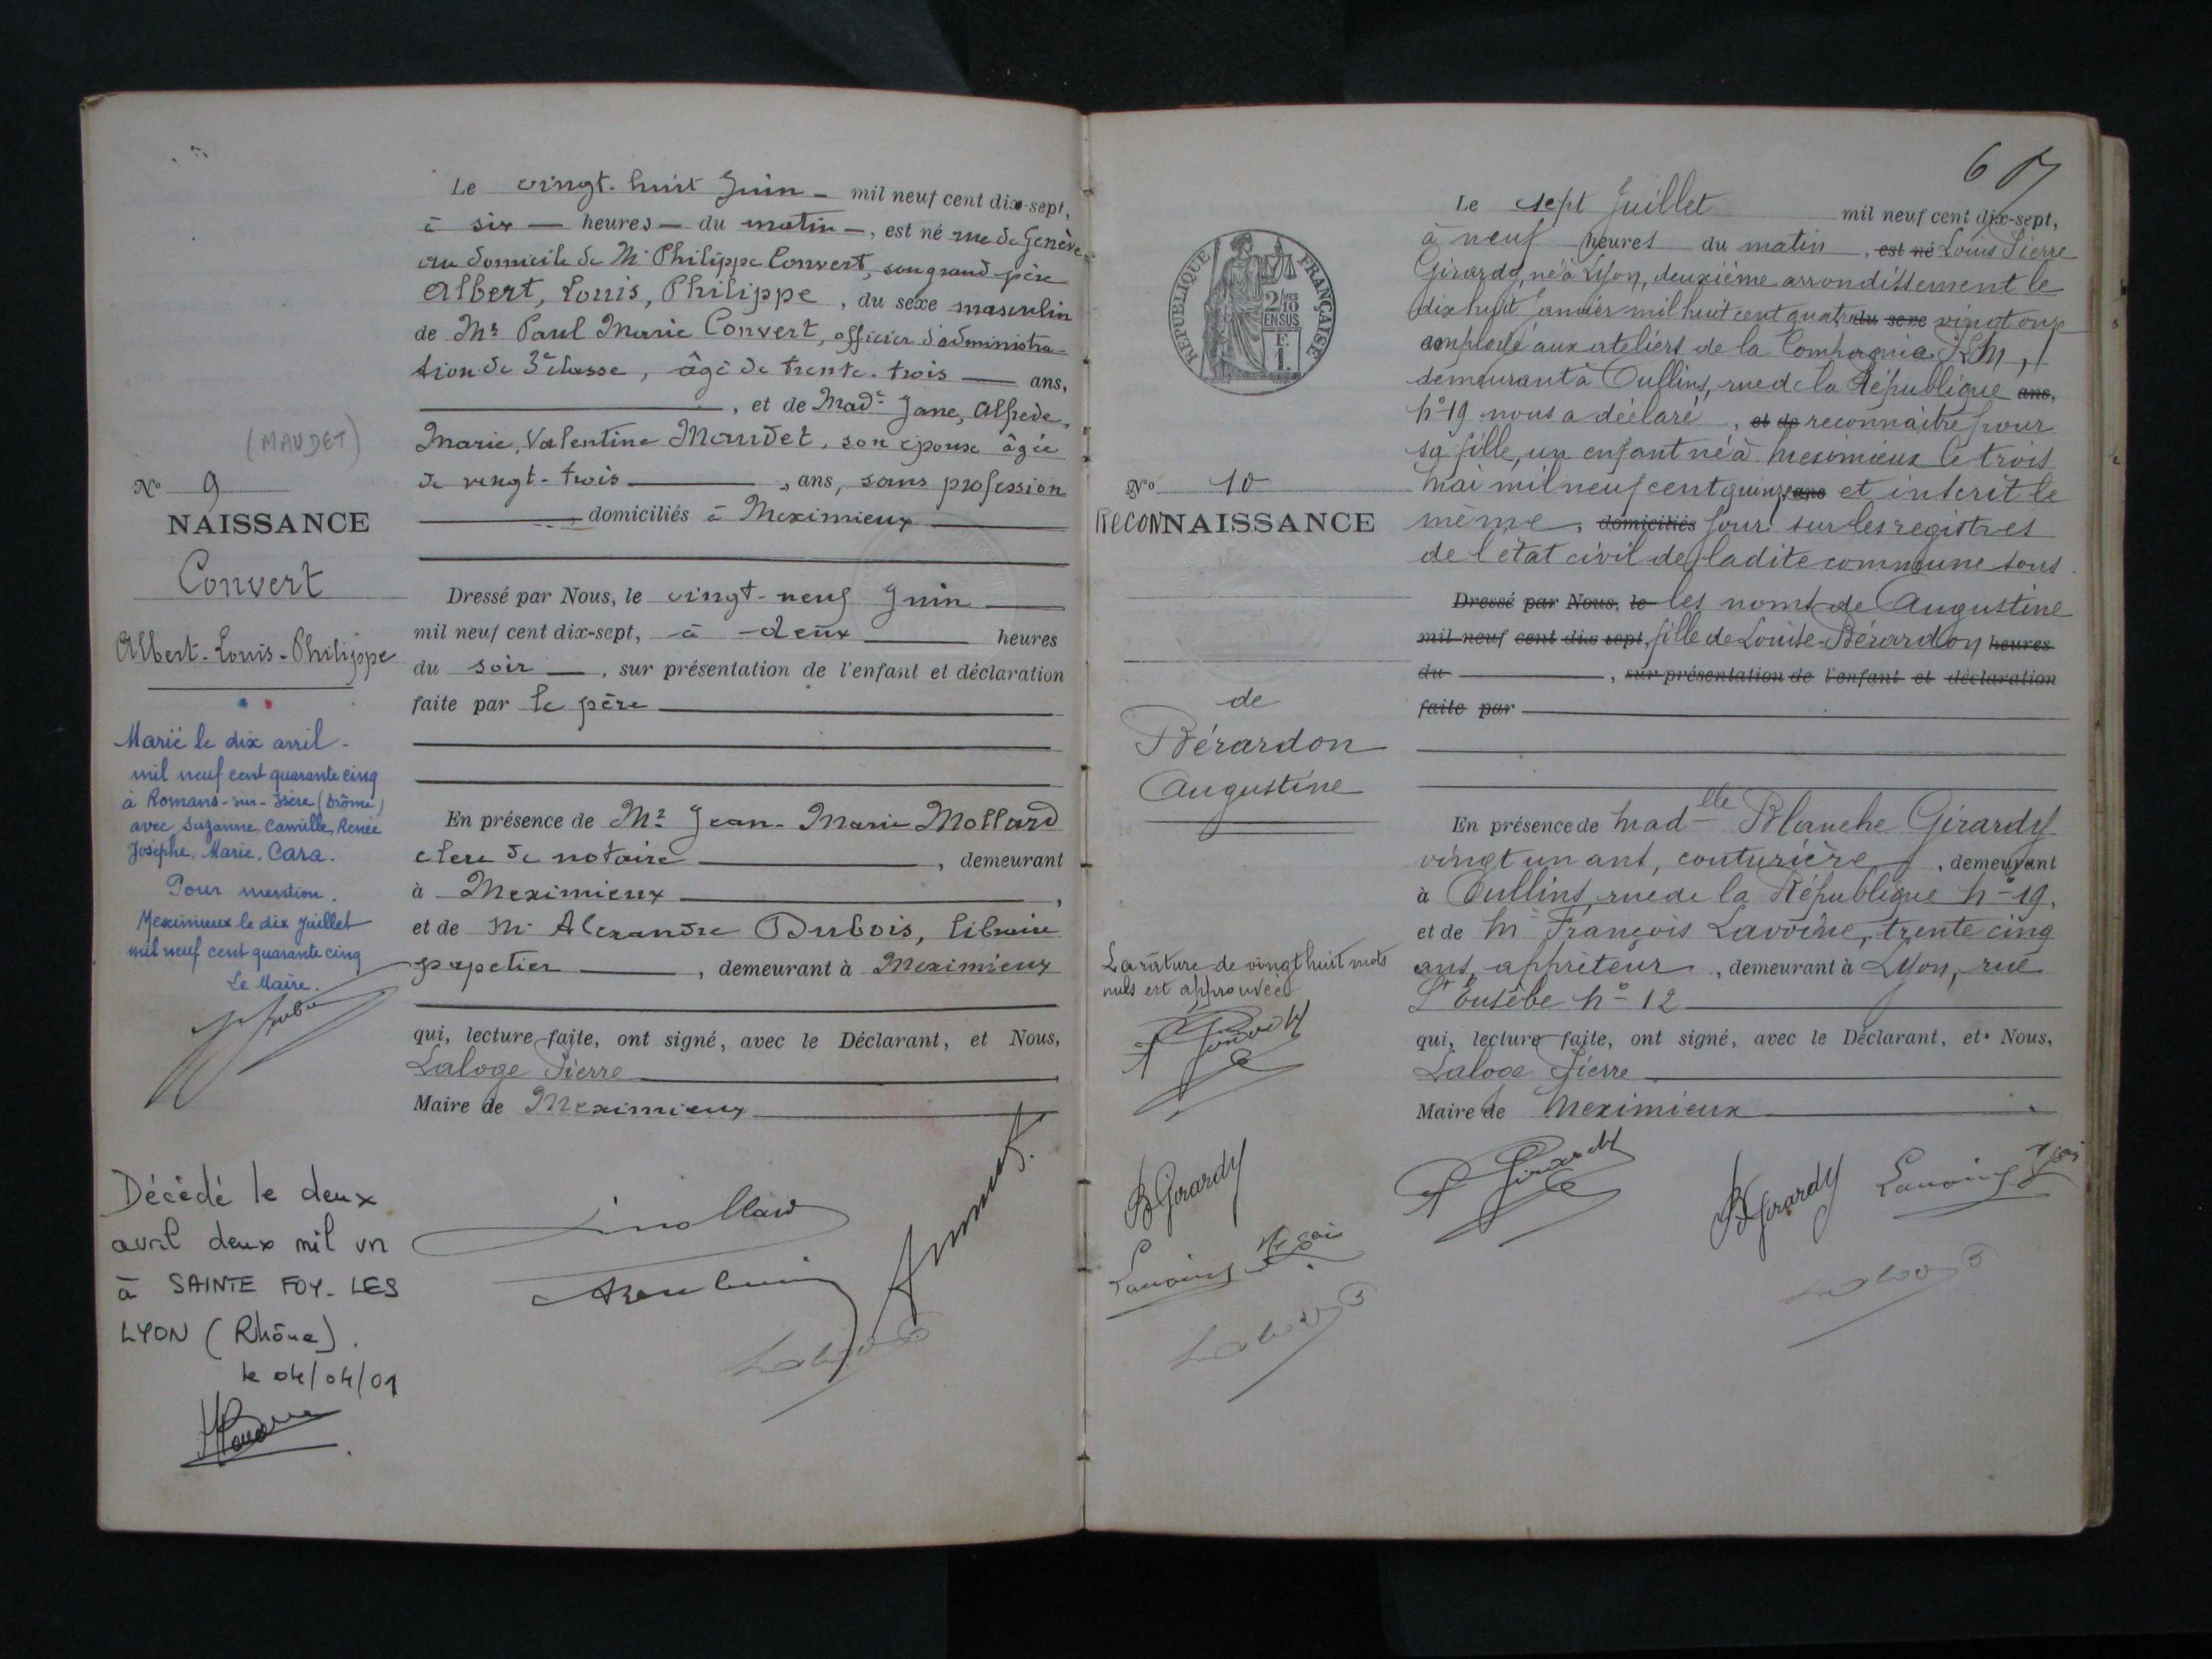 (MAUDET)
N° 9
NAISSANCE
Convert
Albert-Louis-Philippe
Marié le dix avril
mil neuf cent quarante cinq
à Romans-sur-Isère (Drôme)
avec Suzanne, Camille, Renée
Josèphe, Marie, Cara.
Pour mention.
Meximieux le dix Juillet
mil neuf cent quarante cinq
Le Maire.
Décédé le deux
avril deux mil un
à SAINTE FOY-LES
LYON (Rhône).
le 04/04/01
Le vingt-huit Juin - mil neuf cent dix-sept,
à six — heures — du matin —, est né rue de Genève
au domicile de Mr Philippe Convert, son grand-père
Albert, Louis, Philippe, du sexe masculin
de Mr Paul Marie Convert, officier d'administra-
tion de 3e classe, âgé de trente-trois — ans,
, et de Made Jane, Alfrede,
Marie, Valentine Maudet, son épouse âgée
de vingt-trois —, ans, sans profession
domiciliés à Meximieux
Dressé par Nous, le vingt-neuf Juin
mil neuf cent dix-sept, à deux heures
du soir —, sur présentation de l'enfant et déclaration
faite par le père
En présence de Mr Jean-Marie Mollard
clerc de notaire, demeurant
à Meximieux,
et de Mr Alexandre Dubois, libraire
papetier, demeurant à Meximieux
qui, lecture faite, ont signé, avec le Déclarant, et Nous,
Laloge Pierre
Maire de Meximieux
Mollard
67
RÉPUBLIQUE FRANÇAISE
2/10
EN SUS
N° 10
RECONNAISSANCE
de
Bérardon
Augustine
La rature de vingt huit mots
nuls est approuvée
P Girardy
B Girardy
Lavoine
Laloge
Le sept Juillet mil neuf cent dix-sept,
à neuf heures du matin, est né Louis Pierre
Girardy, né à Lyon, deuxième arrondissement le
dix huit Janvier mil huit cent quatre du sexe vingt onze
employé aux ateliers de la Compagnie PLM,
demeurant à Oullins, rue de la République ans,
n° 19 nous a déclaré, et de reconnaître pour
sa fille, un enfant né à Meximieux le trois
Mai mil neuf cent quinze ans et inscrit le
même, domiciliés jour sur les registres
de l'état civil de ladite commune sous
Dressé par Nous, le les noms de Augustine
mil neuf cent dix sept, fille de Louise Bérardon heures
du, sur présentation de l'enfant et déclaration
faite par
En présence de Madlle Blanche Girardy
vingt un ans, couturière, demeurant
à Oullins, rue de la République n° 19,
et de Mr François Lavoine, trente cinq
ans, apprêteur, demeurant à Lyon, rue
St Eusèbe n° 12
qui, lecture faite, ont signé, avec le Déclarant, et Nous,
Laloge Pierre
Maire de Meximieux
P Girardy
B Girardy
Lavoine
Laloge